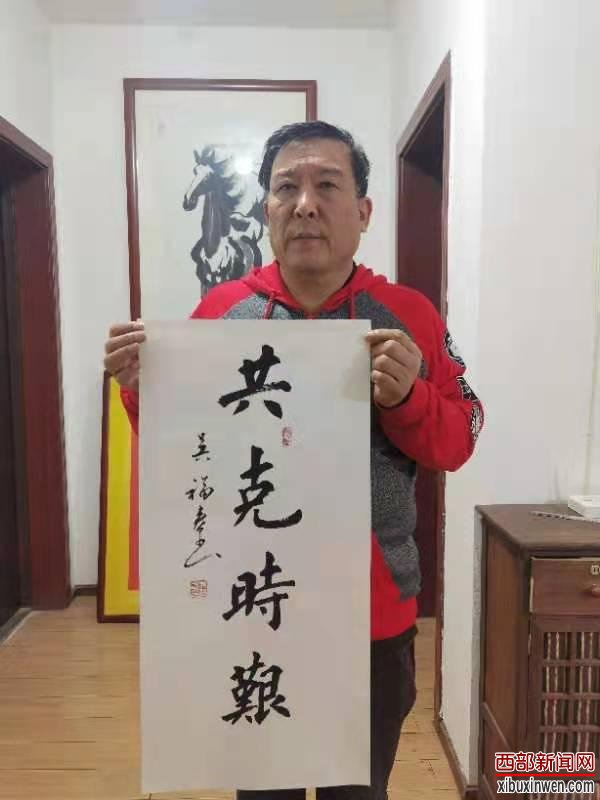 共克時艱
吳福春
西部新闻网
xibuxinwen.com